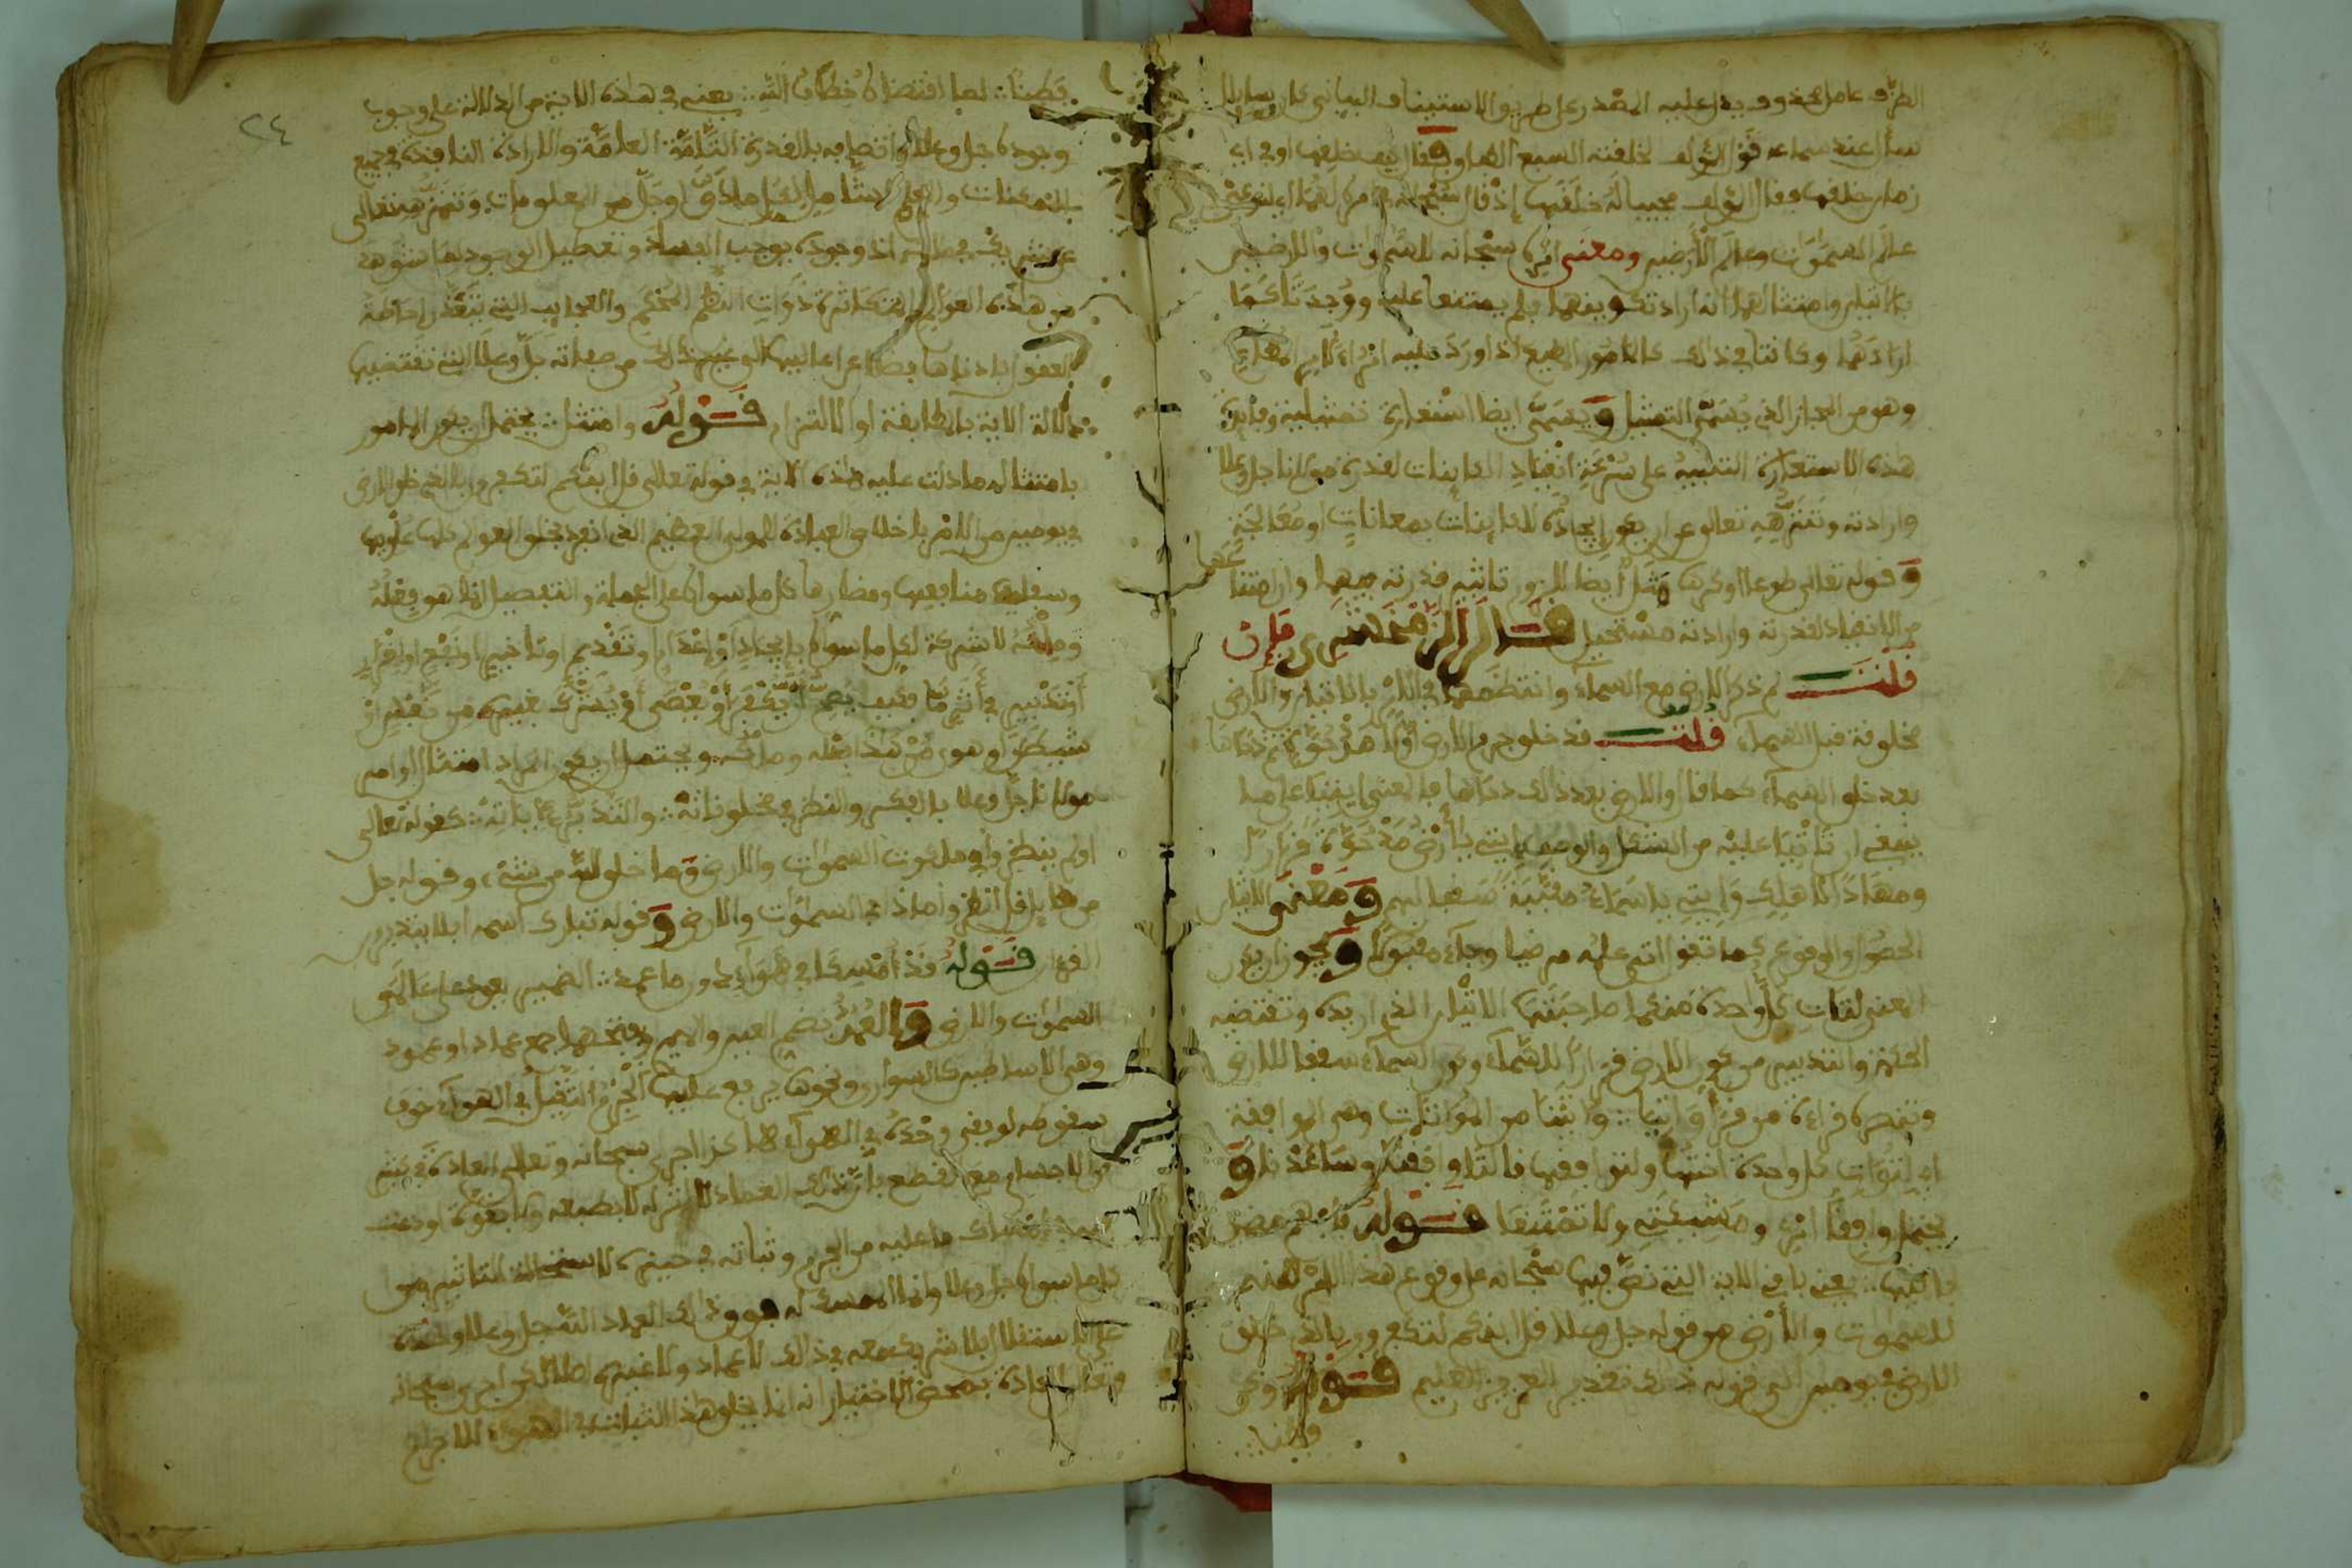 الظرف عامل محذوف يدل عليه المصدر على طريق الاستيناف البياني كان سايلا
سأل عند سماعه قول المؤلف لخلقته السبع الطباق فقال كيف خلقها او في اي
زمان خلقها فقال المؤلف مجيبا له خلقها إذ قال سبحانه في امره لهما اي لنوعي
عالم السموات وعالم الأرضين ومعنى امره سبحانه للسموات والارضين
بالاتيان وامتثالهما انه اراد تكوينهما فلم يمتنعا عليه ووجدتا كما
ارادهما وكانتا في ذلك كالمامور المطيع اذا ورد عليه امر الآمر المطاع
وهو من المجاز الذي يسمى التمثيل ويسمى ايضا استعارة تمثيلية وفايدة
هذه الاستعارة التنبيه على سرعة انقياد الكاينات لقدرة مولانا جل وعلا
وارادته وتنزهه تعالى عن ان يكون ايجاده للكاينات بمعانات او معالجة
وقوله تعالى طوعا او كرها مثل أيضا للزوم تاثير قدرته فيهما وان امتناعهما
من الانقياد لقدرته وارادته مستحيل قال الزمخشري فإن
قلت لم ذكر الارض مع السماء وانتظمهما في الامر بالاتيان والارض
مخلوقة قبل السماء قلت قد خلق جرم الارض أولا غير مدحوة ثم دحاها
بعد خلق السماء كما قال والارض بعد ذلك دحاها فالمعنى ايتيا على ما
ينبغي ان تأتيا عليه من الشكل والوصف ايتي يا أرض مدحوة قرارا
ومهادا لاهلك وايتي يا سماء مقببة سقفا لهم ومعنى الاتيان
الحصول والوقوع كما تقول اتى عليه مرضيا وجاء مقبولا ويجوز ان يكون
المعنى لتات كل واحدة منكما صاحبتها الاتيان الذي اريده وتقتضيه
الحكمة والتدبير من كون الارض قرارا للسماء وكون السماء سقفا للارض
وتنصره قراءة من قرأ واتيا واتينا من المواتات وهي الموافقة
اي لتوات كل واحدة اختها ولتوافقها قالتا وافقنا وساعدنا و
يحتمل وافقا امري ومشيئتي ولا تمتنعا قوله
يعني باي الاية التي نص فيها سبحانه على وقوع هذا الامر منه
للسموات والأرض هو قوله جل وعلا قل ائنكم لتكفرون بالذي خلق
الارض في يومين الى قوله ذلك تقدير العزيز العليم قوله
وقطنا
٢٤
وقطنا لما اقتضاه خطاب الله يعني في هذه الاية من الدلالة على وجوب
وجوده جل وعلا واتصافه بالقدرة التامة العامة والارادة النافذة في جميع
الممكنات والعلم بما دق او جل من المعلومات وتنزهه تعالى
عن شريك في ملكه اذ وجوده يوجب الفساد وتعطيل الوجود لما نشوهد
من هذه العوالم المتكاثرة ذوات النظم المحكم والعجايب التي تتعذر احاطة
العقول بادناها فضلا عن اعاليها الى غير ذلك من صفاته جل وعلا التي تقتضيها
دلالة الاية بالمطابقة او الالتزام قوله وامتثل يحتمل ان يكون المامور
بامتثاله ما دلت عليه هذه الاية في قوله تعالى قل ائنكم لتكفرون بالذي خلق الارض
في يومين من الامر باخلاص العبادة للمولى العظيم الذي انفرد بخلق العوالم كلها علويها
وسفليها منافعها ومضارها كل ما سواه على الجملة والتفصيل انما هو فعله
وملكه لا شركة لكل ما سواه بايجاد أو إعدام او تقديم او تاخير او نفع او ضر
أو تدبير في أثر ما فكيف يصح أن يكفر أو يعصى أو يشرك غيره
وهو فعله وملكه ويحتمل ان يكون المراد امتثال اوامر
مولانا جل وعلا بالفكر والنظر في مخلوقاته والتدبر في آياته كقوله تعالى
اولم ينظروا في ملكوت السموات والارض وما خلق الله من شيء وقوله جل
من قايل قل انظروا ماذا في السموات والارض وقوله تبارك اسمه افلا يتدبرون
القرآن قوله قد أمسكا في هواء دون ما عمد الضمير يعود على عالمي
السموات والارض والعمد بضم العين والميم وفتحهما جمع عماد او عمود
وهي الاساطين كالسواري ونحوها يرفع عليها الجرم الثقيل في الهواء خوف
سقوطه لو بقي وحده في الهواء هكذا اجرى سبحانه وتعالى العادة في كثير
من الاجسام مع القطع بأن تلك العماد لا اثر لها لا بطبعها ولا بقوة اودعت
فيها في امساك ما عليه من الجرم وثباته في حيزه لاستحالة التاثير من
كل ما سواه جل وعلا وانما الممسك له فوق ذلك العماد الله جل وعلا وحده
على الاستقلال بلا شريك معه في ذلك لا عماد ولا غيره اصلا لكن اجرى سبحانه
وتعالى العادة بمحض الاختيار انه انما يخلق هذا الثبات في الهواء للاجرام